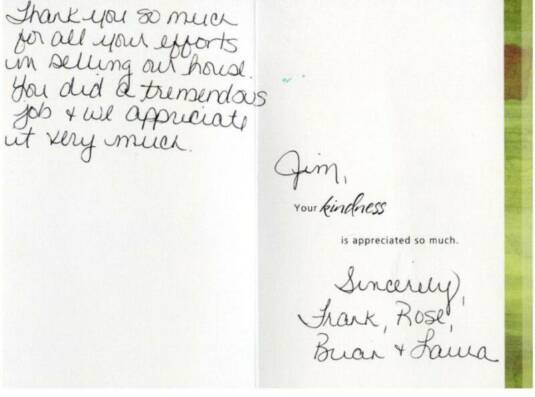 Thank you so much
for all your efforts
in selling our house.
You did a tremendous
job & we appreciate
it very much.
Jim,
Your kindness
is appreciated so much.
Sincerely,
Frank, Rose,
Brian & Laura